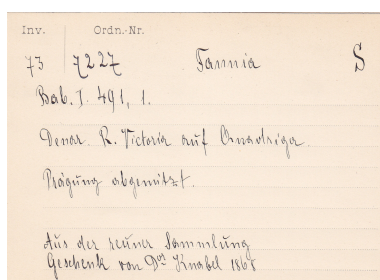 Inv. Ordn.-Nr.
73 7227 Fannia S
Bab. I. 491, 1.
Denar. R. Victoria auf Quadriga.
Prägung abgenützt.
Aus der Sammlung
Geschenk von Dor Knabel 186